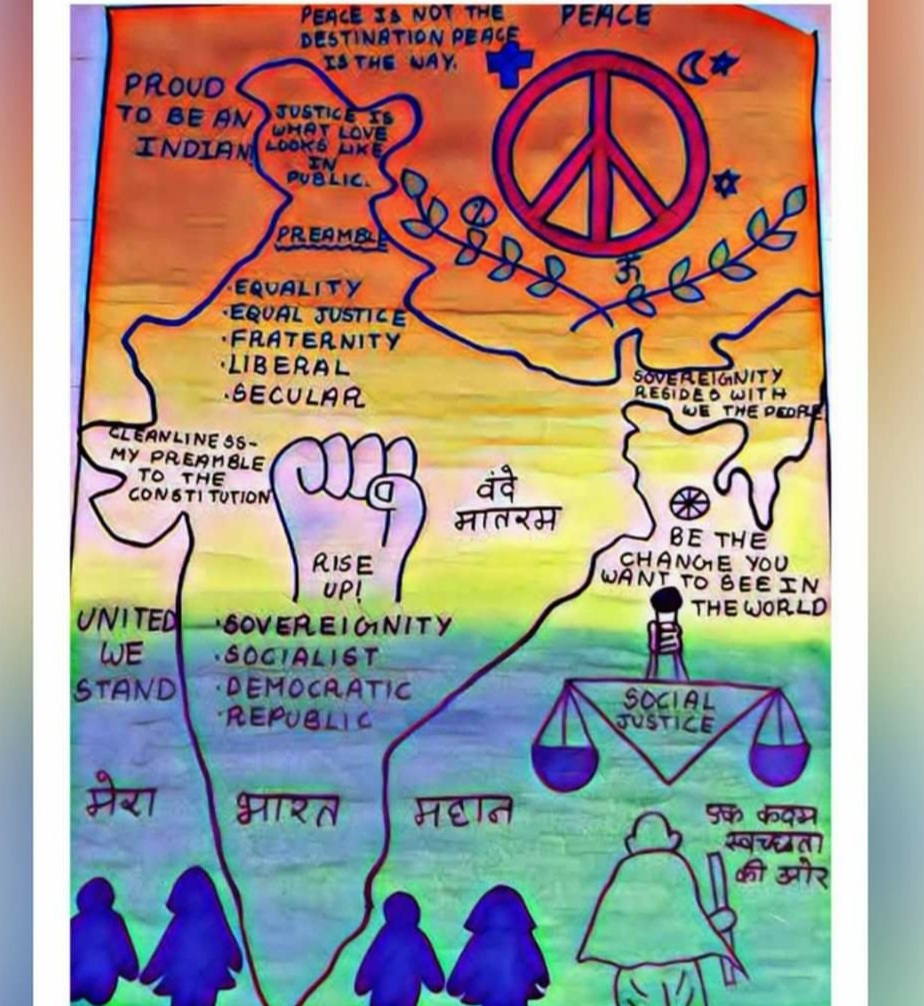 PEACE IS NOT THE
DESTINATION PEACE
IS THE WAY.
PEACE
PROUD
TO BE AN
INDIAN
JUSTICE IS
WHAT LOVE
LOOKS LIKE
IN
PUBLIC.
ॐ
PREAMBLE
•EQUALITY
•EQUAL JUSTICE
•FRATERNITY
•LIBERAL
•SECULAR
SOVEREIGNITY
RESIDES WITH
WE THE PEOPLE
CLEANLINESS-
MY PREAMBLE
TO THE
CONSTITUTION
वंदे
मातरम
RISE
UP!
BE THE
CHANGE YOU
WANT TO SEE IN
THE WORLD
UNITED
WE
STAND
•SOVEREIGNITY
•SOCIALIST
•DEMOCRATIC
•REPUBLIC
SOCIAL
JUSTICE
मेरा भारत महान
एक कदम
स्वच्छता
की ओर